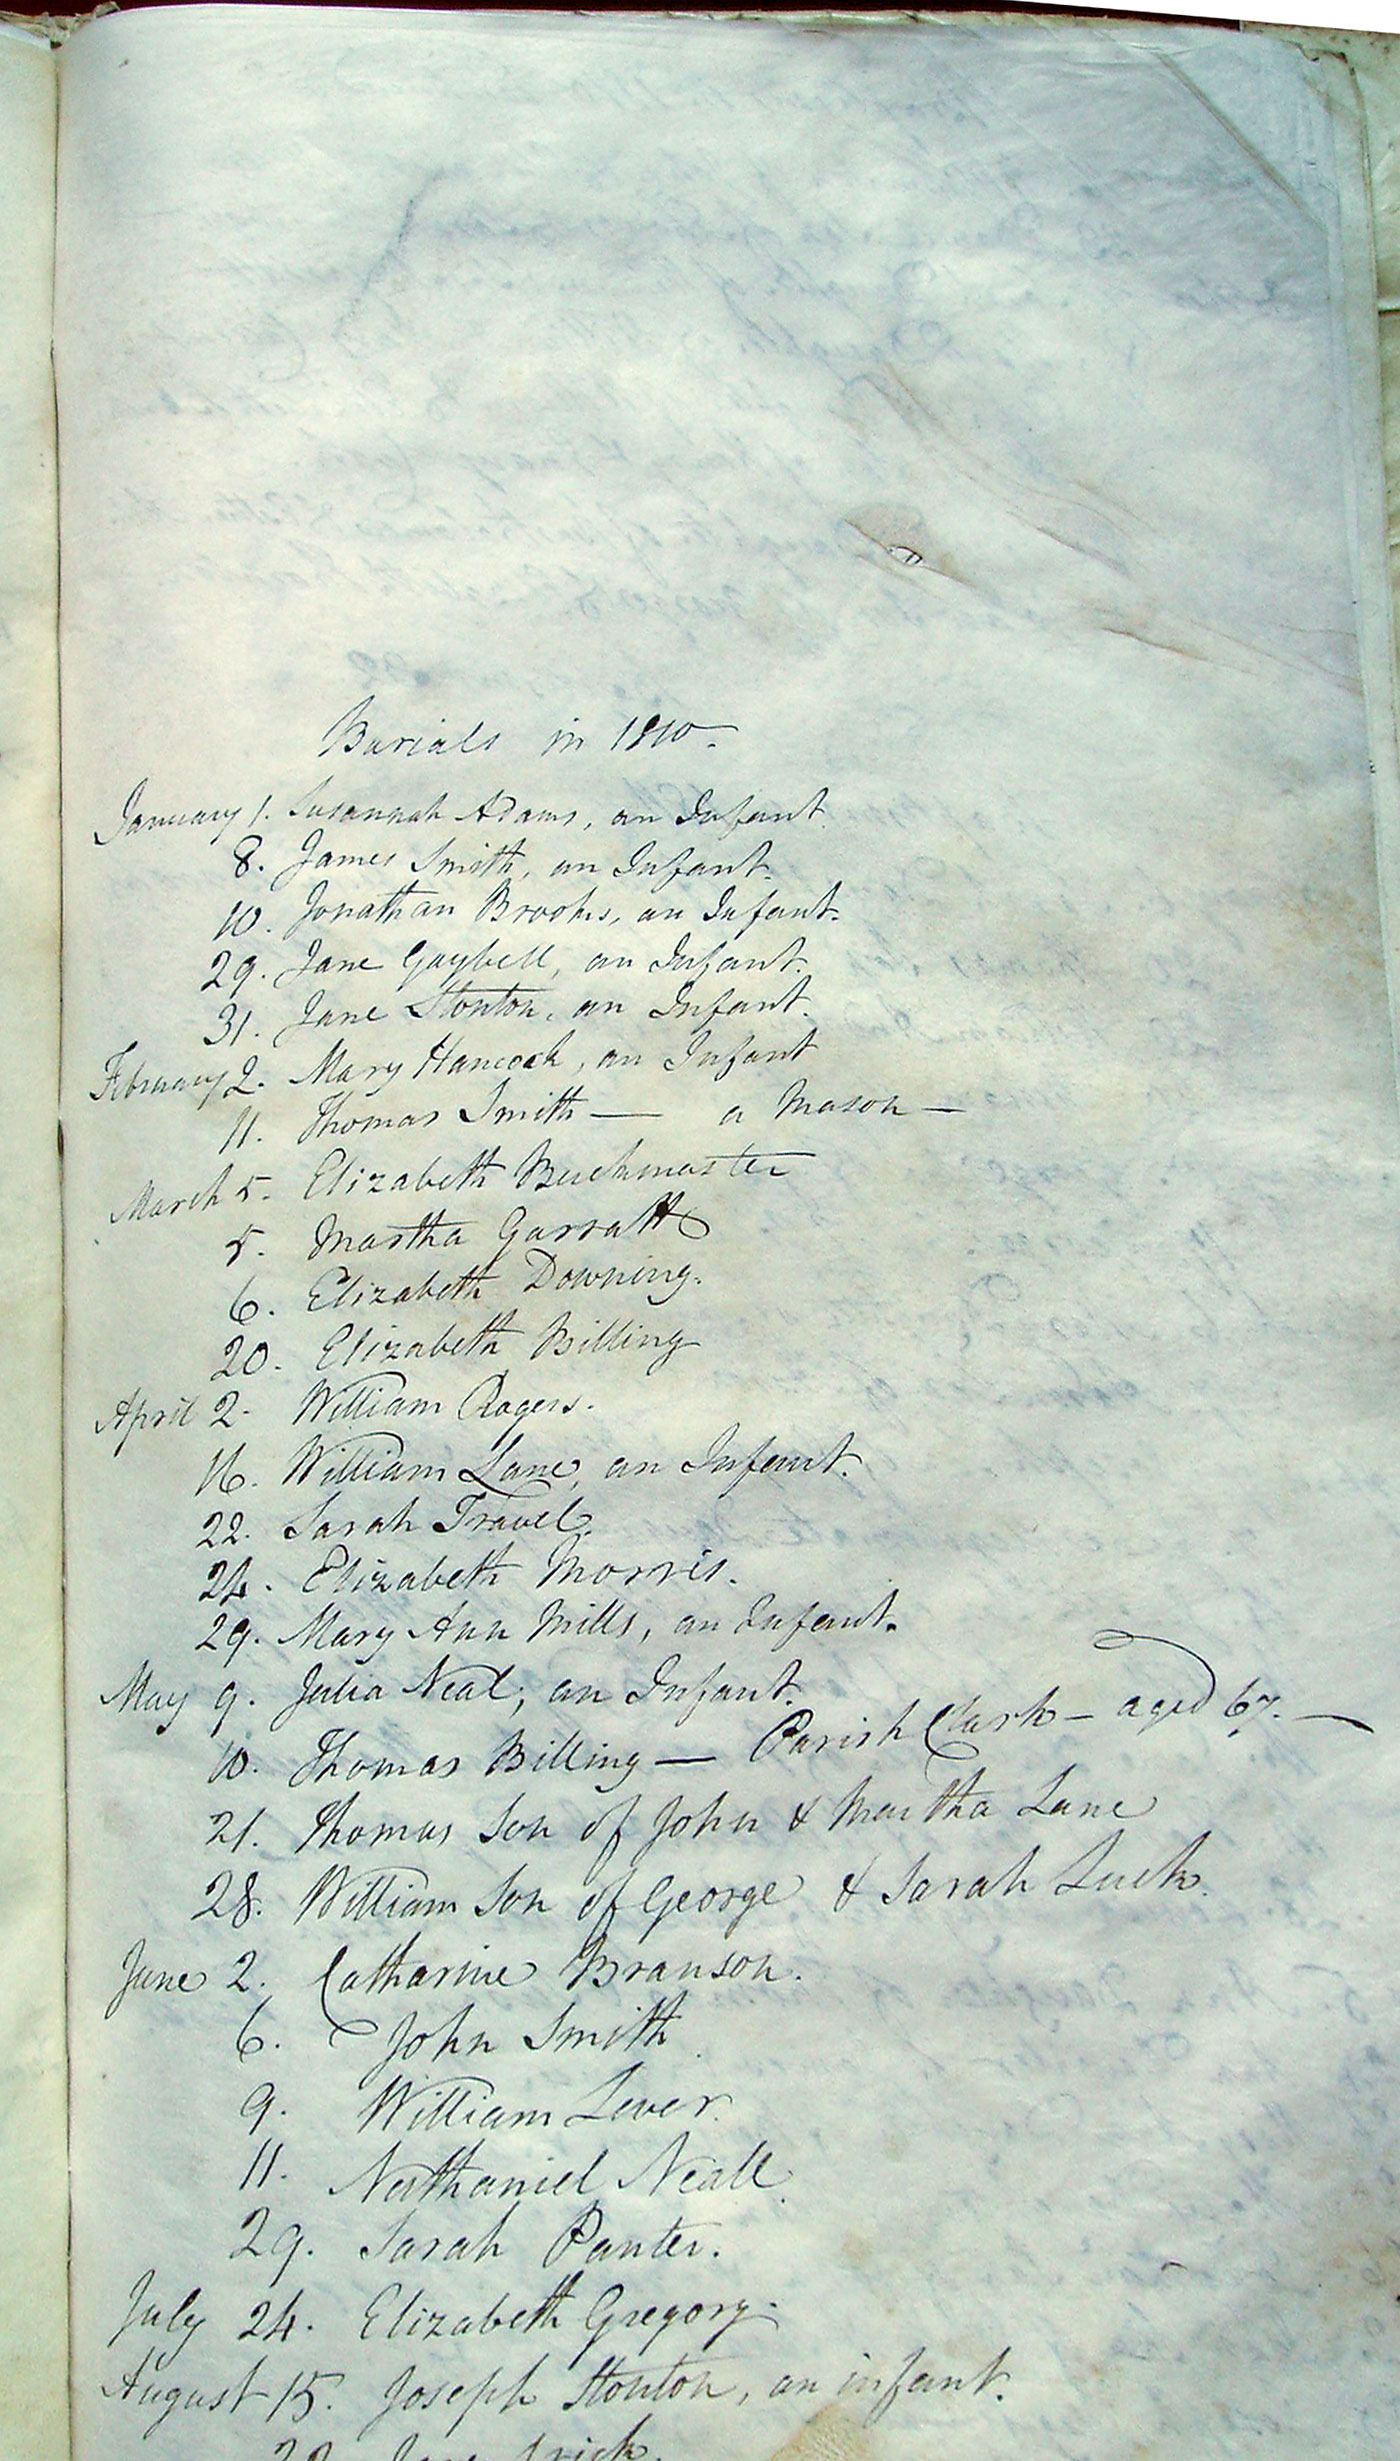 Burials in 1810.
January 1. Susannah Adams, an Infant.
8. James Smith, an Infant.
10. Jonathan Brooks, an Infant.
29. Jane Gaybell, an Infant.
31. Jane Stonton, an Infant.
February 2. Mary Hancock, an Infant
11. Thomas Smith — a Mason —
March 5. Elizabeth Buckmaster
5. Martha Garratt
6. Elizabeth Downing.
20. Elizabeth Billing
April 2. William Rogers.
16. William Lane, an Infant.
22. Sarah Travel.
24. Elizabeth Morris.
29. Mary Ann Mills, an Infant.
May 9. Julia Neal, an Infant.
10. Thomas Billing — Parish Clark — aged 67. —
21. Thomas Son of John & Martha Lane
28. William Son of George & Sarah Luck.
June 2. Catharine Branson.
6. John Smith
9. William Lever.
11. Nathaniel Neall.
29. Sarah Panter.
July 24. Elizabeth Gregory.
August 15. Joseph Stonton, an infant.